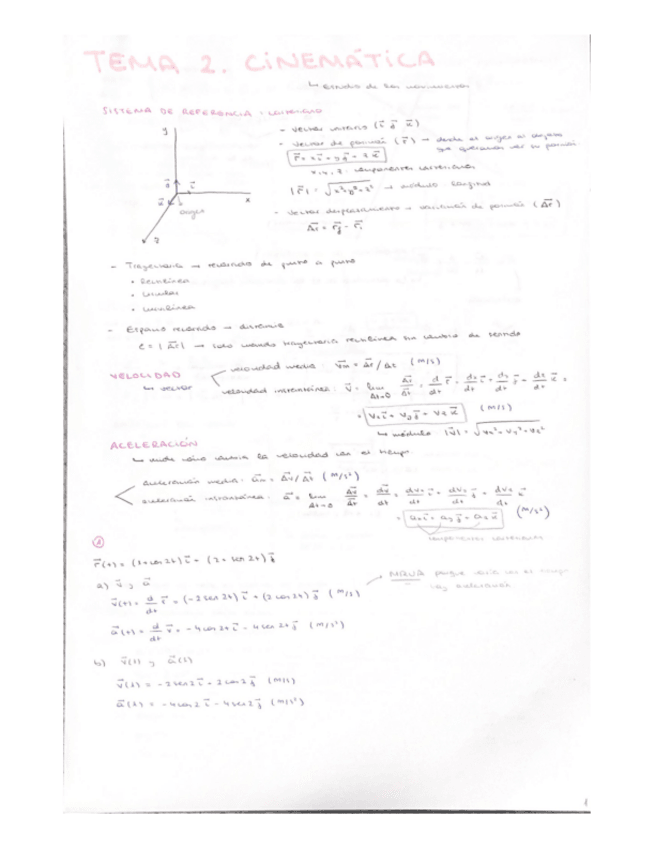 TEMA 2. CINEMÁTICA
↳ Estudio de los movimientos
SISTEMA DE REFERENCIA: cartesiano
y
x
z
origen
- Vector unitario (i⃗ j⃗ k⃗)
- Vector de posición (r⃗) → desde el origen al objeto
que queramos ver su posición
r⃗ = xi⃗ + yj⃗ + zk⃗
x, y, z: componentes cartesianas
|r⃗| = √x²+y²+z² → módulo longitud
- Vector desplazamiento → variación de posición (Δr⃗)
Δr⃗ = r⃗f - r⃗i
- Trayectoria → recorrido de punto a punto
• Rectilínea
• Circular
• Curvilínea
- Espacio recorrido → distancia
e = |Δr⃗| → solo cuando trayectoria rectilínea sin cambio de sentido
VELOCIDAD
↳ vector
velocidad media: v⃗m = Δr⃗/Δt (m/s)
velocidad instantánea: v⃗ = lim Δt→0 Δr⃗/Δt = d/dt r⃗ = dx/dt i⃗ + dy/dt j⃗ + dz/dt k⃗ =
= Vx i⃗ + Vy j⃗ + Vz k⃗ (m/s)
↳ módulo |v⃗| = √Vx²+Vy²+Vz²
ACELERACIÓN
↳ mide cómo cambia la velocidad con el tiempo
aceleración media: a⃗m = Δv⃗/Δt (m/s²)
aceleración instantánea: a⃗ = lim Δt→0 Δv⃗/Δt = dv⃗/dt = dVx/dt i⃗ + dVy/dt j⃗ + dVz/dt k⃗
= ax i⃗ + ay j⃗ + az k⃗ (m/s²)
componentes cartesianas
①
r⃗(t) = (1+cos 2t) i⃗ + (2+sen 2t) j⃗
a) v⃗ y a⃗
v⃗(t) = d/dt r⃗ = (-2 sen 2t) i⃗ + (2 cos 2t) j⃗ (m/s)
MRUA porque varía con el tiempo
hay aceleración
a⃗(t) = d/dt v⃗ = -4 cos 2t i⃗ - 4 sen 2t j⃗ (m/s²)
b) v⃗(1) y a⃗(1)
v⃗(1) = -2 sen 2 i⃗ + 2 cos 2 j⃗ (m/s)
a⃗(1) = -4 cos 2 i⃗ - 4 sen 2 j⃗ (m/s²)
1